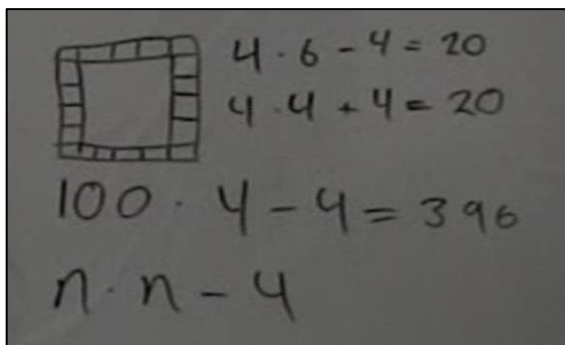 4 · 6 - 4 = 20
4 · 4 + 4 = 20
100 · 4 - 4 = 396
n · n - 4